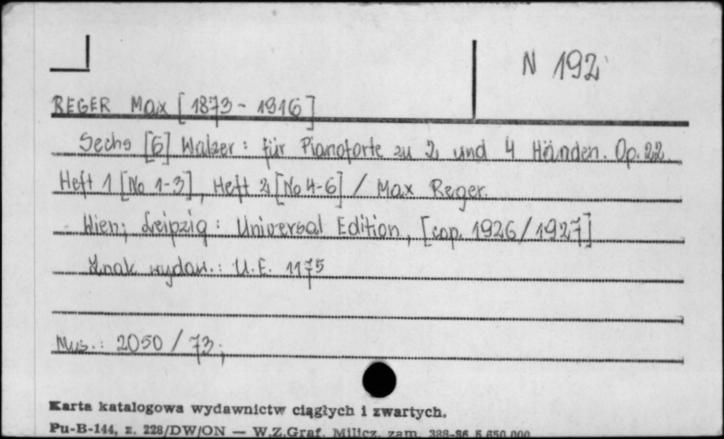 N 192
REGER Max [1873-1916]
Sechs [6] Walzer: für Pianoforte zu 2 und 4 Händen. Op. 22
Heft 1 [No 1-3], Heft 2 [No 4-6] / Max Reger.
Wien; Leipzig: Universal Edition, [cop. 1926/1927]
Znak wydaw.: U.E. 1175
Mus.: 2050/73;
Karta katalogowa wydawnictw ciągłych i zwartych.
Pu-B-144, z. 228/DW/ON — W.Z.Graf. Milicz, zam. 388-86 5.650.000